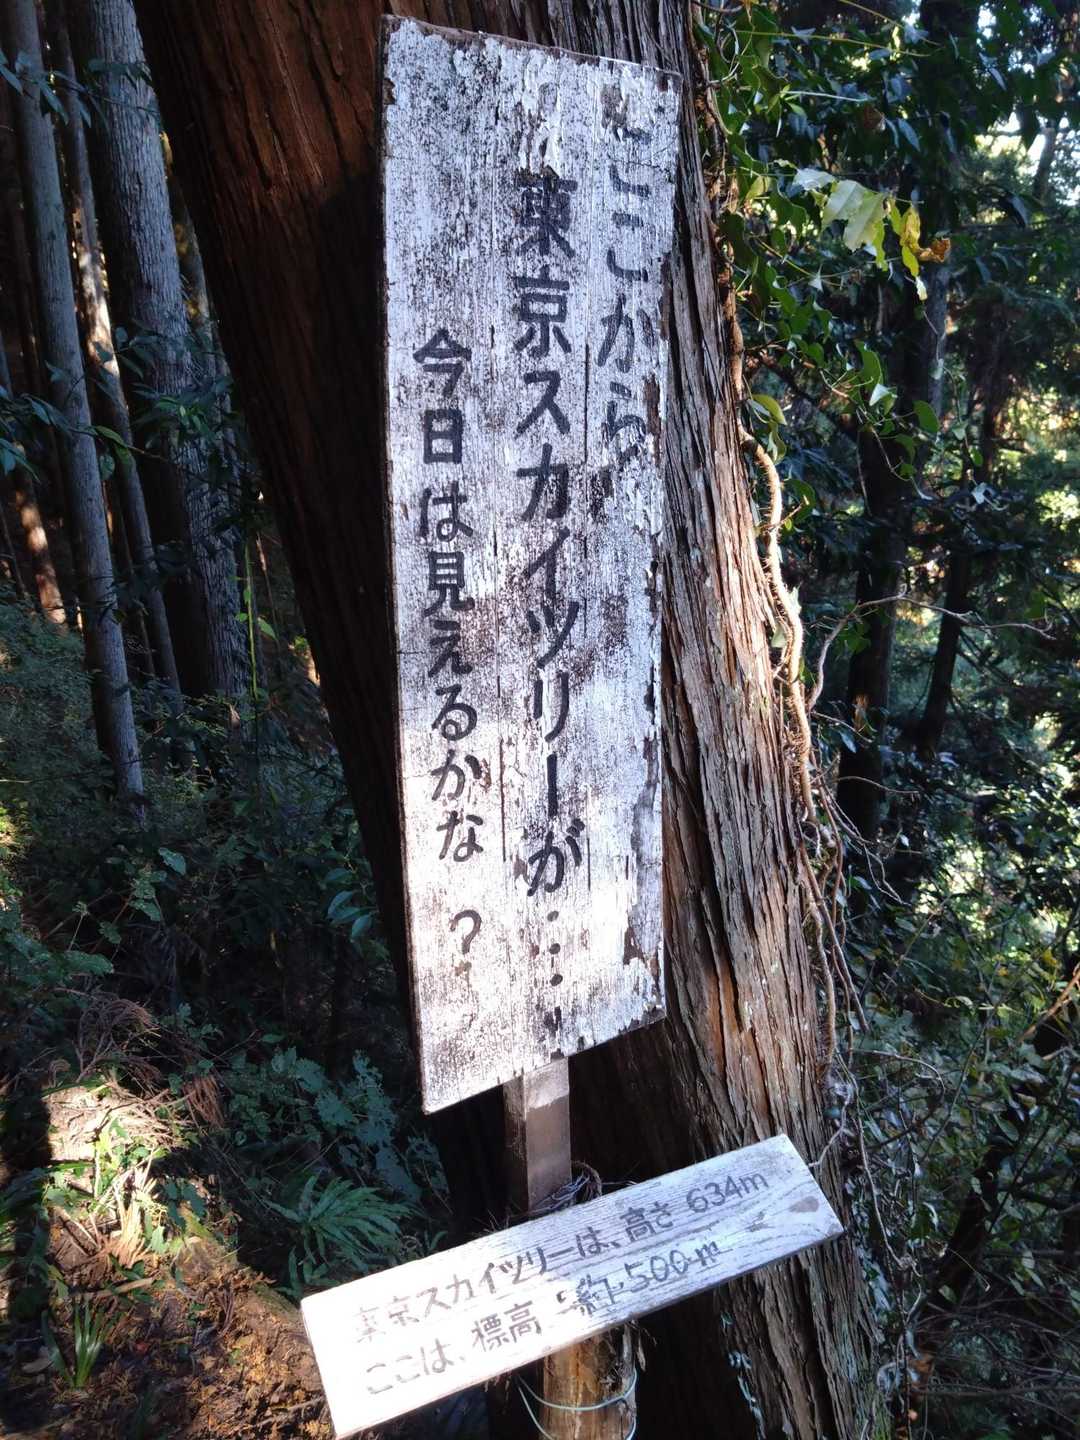 ここから
東京スカイツリーが・・・・
今日は見えるかな?
東京スカイツリーは、高さ634m
ここは、標高 約500m